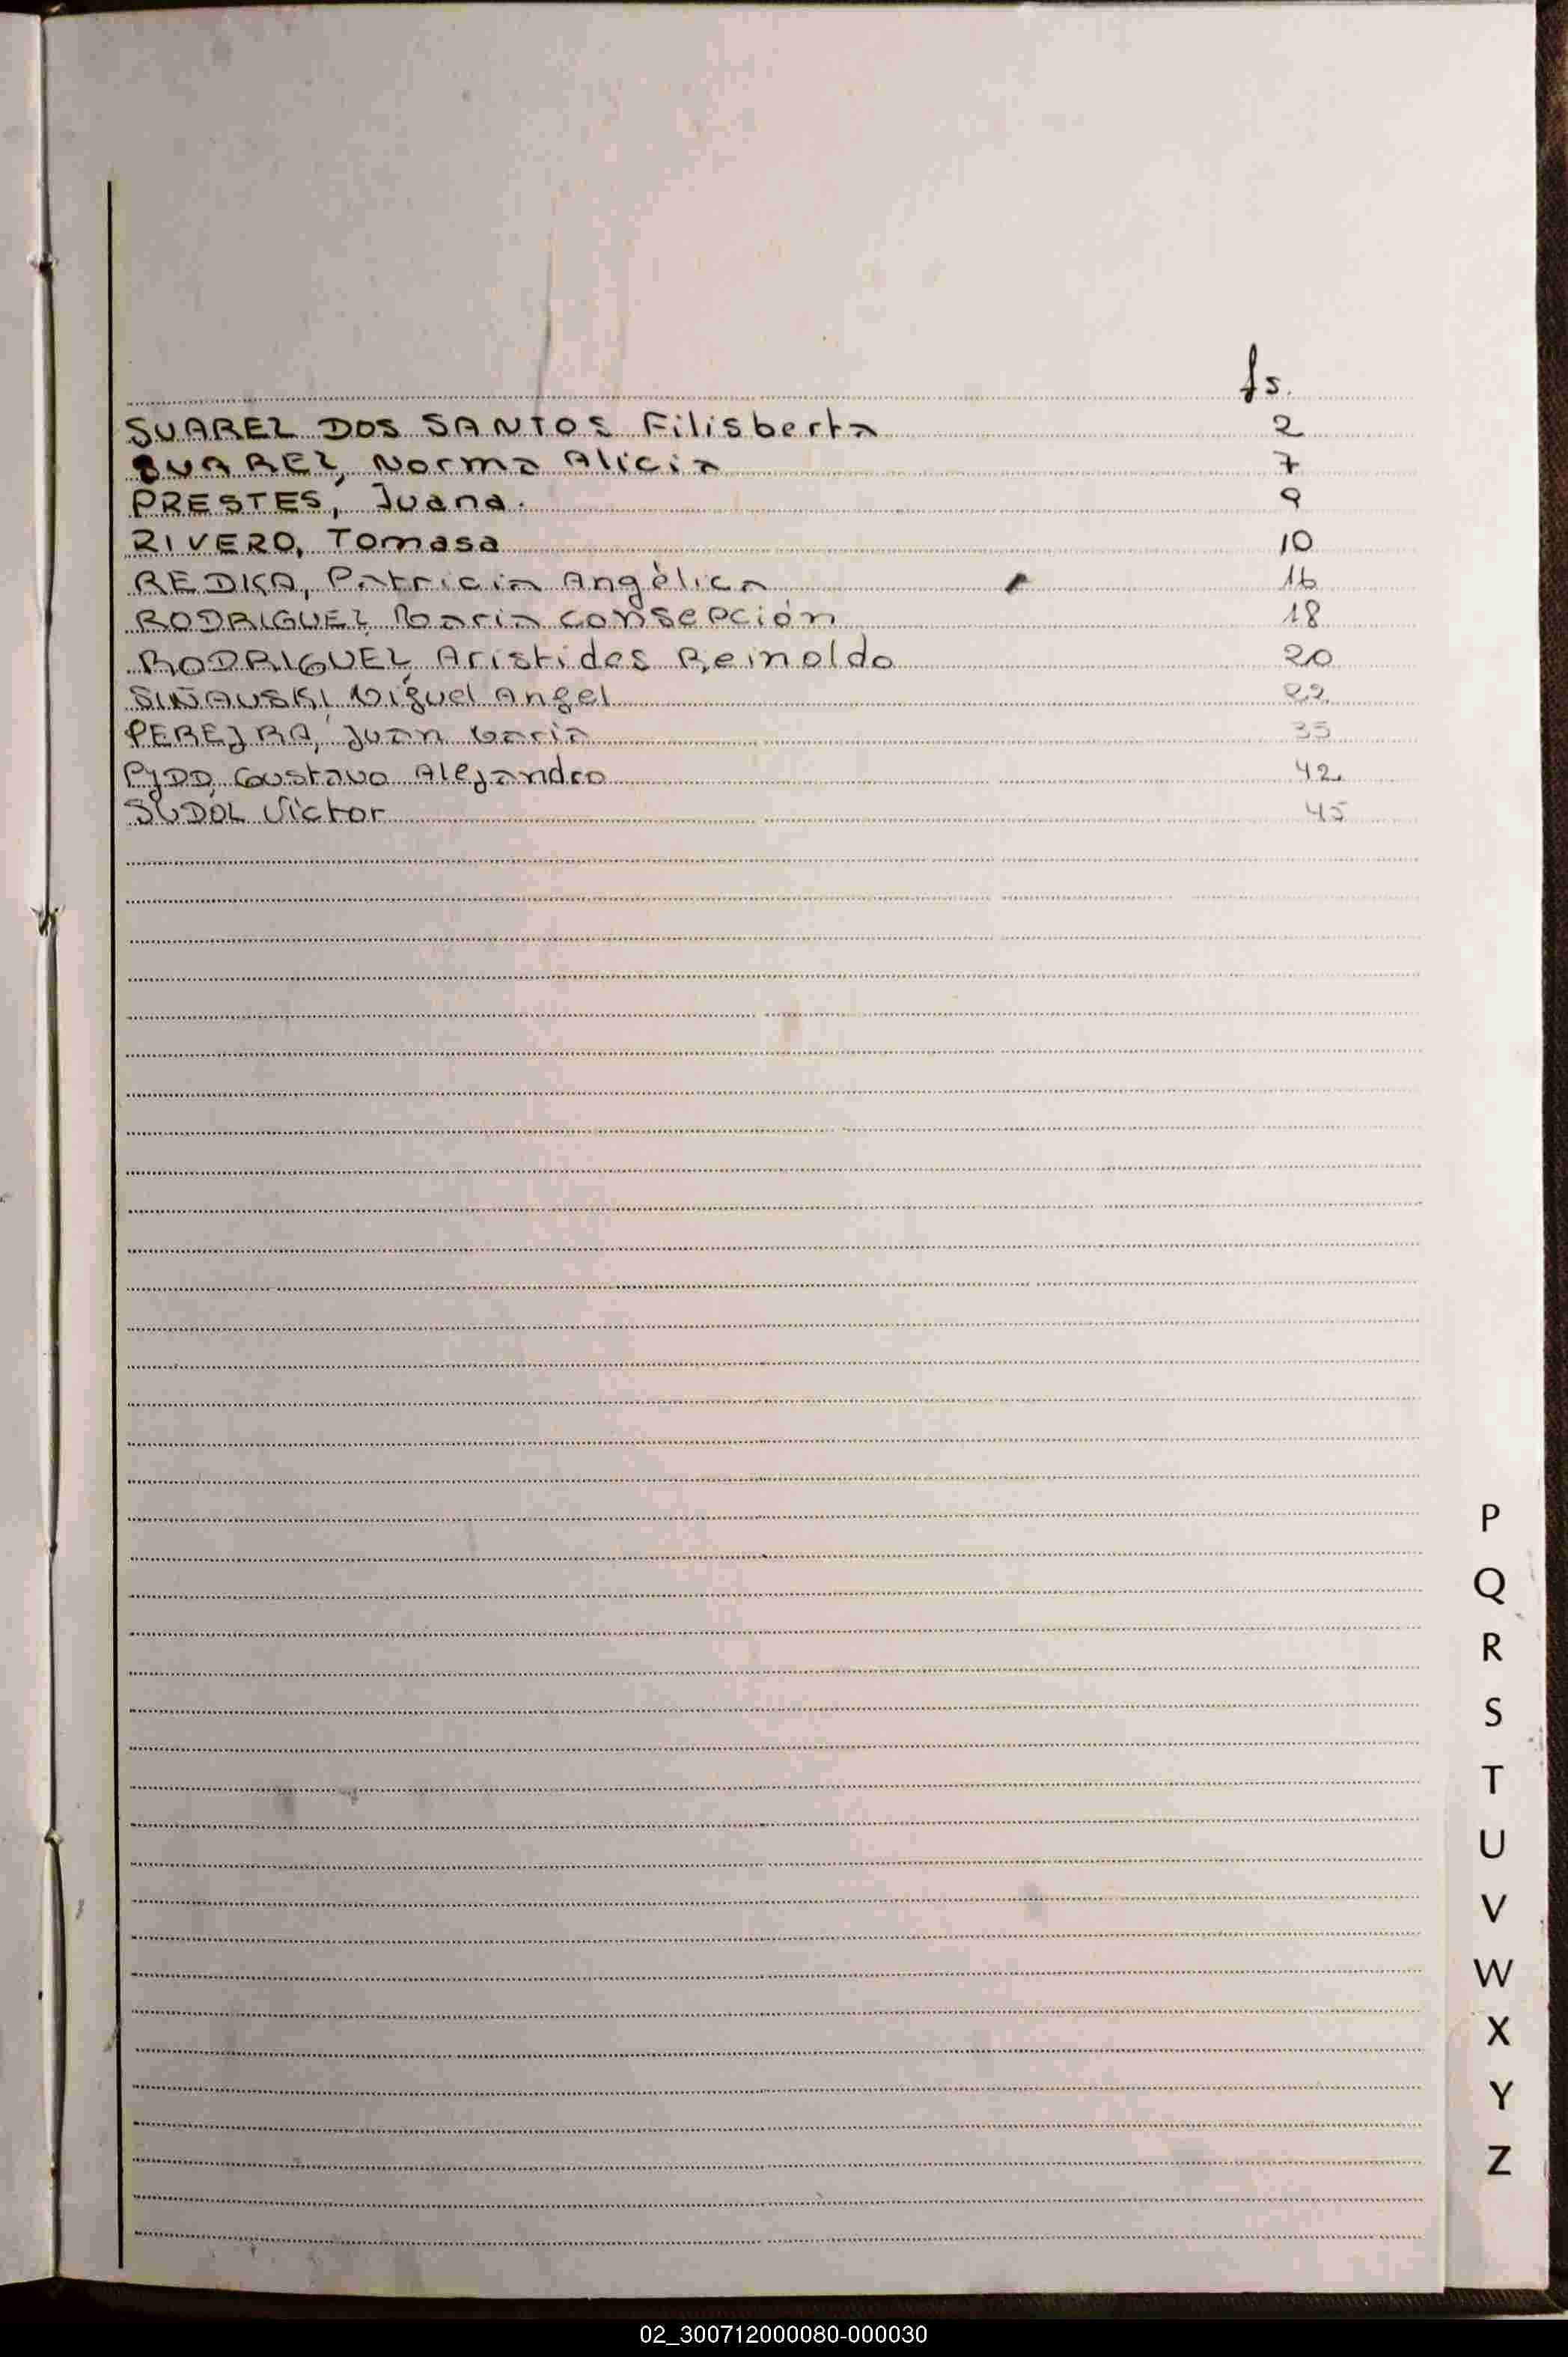 fs.
SUAREZ DOS SANTOS Filisberta 2
SUAREZ, Norma Alicia 7
PRESTES, Juana. 9
RIVERO, Tomasa 10
REDKA, Patricia Angèlica 16
RODRIGUEZ Maria Consepción 18
RODRIGUEZ, Aristides Reinoldo 20
SIÑAUSKI, Miguel Angel 22
PEREJRA, Juan Maria 35
Gustavo Alejandro 42
SUDOL Victor 45
P
Q
R
S
T
U
V
W
X
Y
Z
02_300712000080-000030